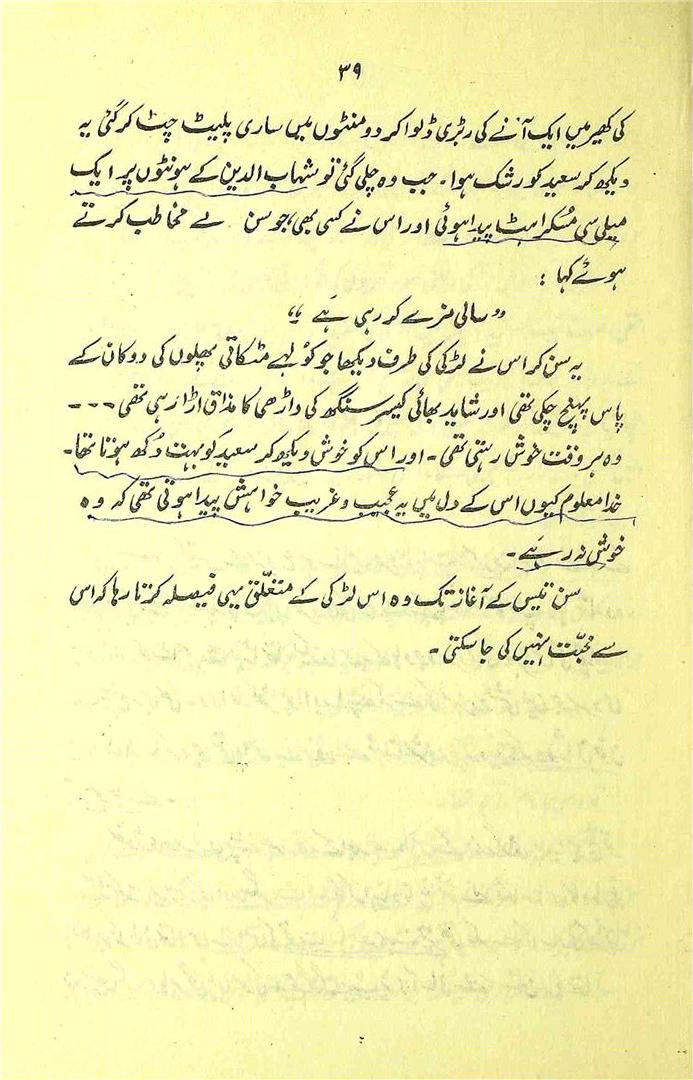 ۳۹
کی کھیر میں ایک آنے کی ربڑی ڈلوا کر دو منٹوں میں ساری پلیٹ چٹ کر گئی یہ
دیکھ کر سعید کو رشک ہوا۔ جب وہ چلی گئی تو شہاب الدین کے ہونٹوں پر ایک
میلی سی مسکراہٹ پیدا ہوئی اور اس نے کسی بھی، جو سن لے مخاطب کرتے
ہوئے کہا :
“سالی مزے کر رہی ہے”
یہ سن کر اس نے لڑکی کی طرف دیکھا جو کولہے مٹکاتی پھلوں کی دوکان کے
پاس پہنچ چکی تھی اور شاید بھائی کیسر سنگھ کی داڑھی کا مذاق اڑا رہی تھی ۔۔۔
وہ ہر وقت خوش رہتی تھی ۔ اور اس کو خوش دیکھ کر سعید کو بہت دکھ ہوتا تھا۔
خدا معلوم کیوں اس کے دل میں یہ عجیب و غریب خواہش پیدا ہوتی تھی کہ وہ
خوش نہ رہے ۔
سن تیس کے آغاز تک وہ اس لڑکی کے متعلّق یہی فیصلہ کرتا رہا کہ اس
سے محبّت نہیں کی جا سکتی ۔